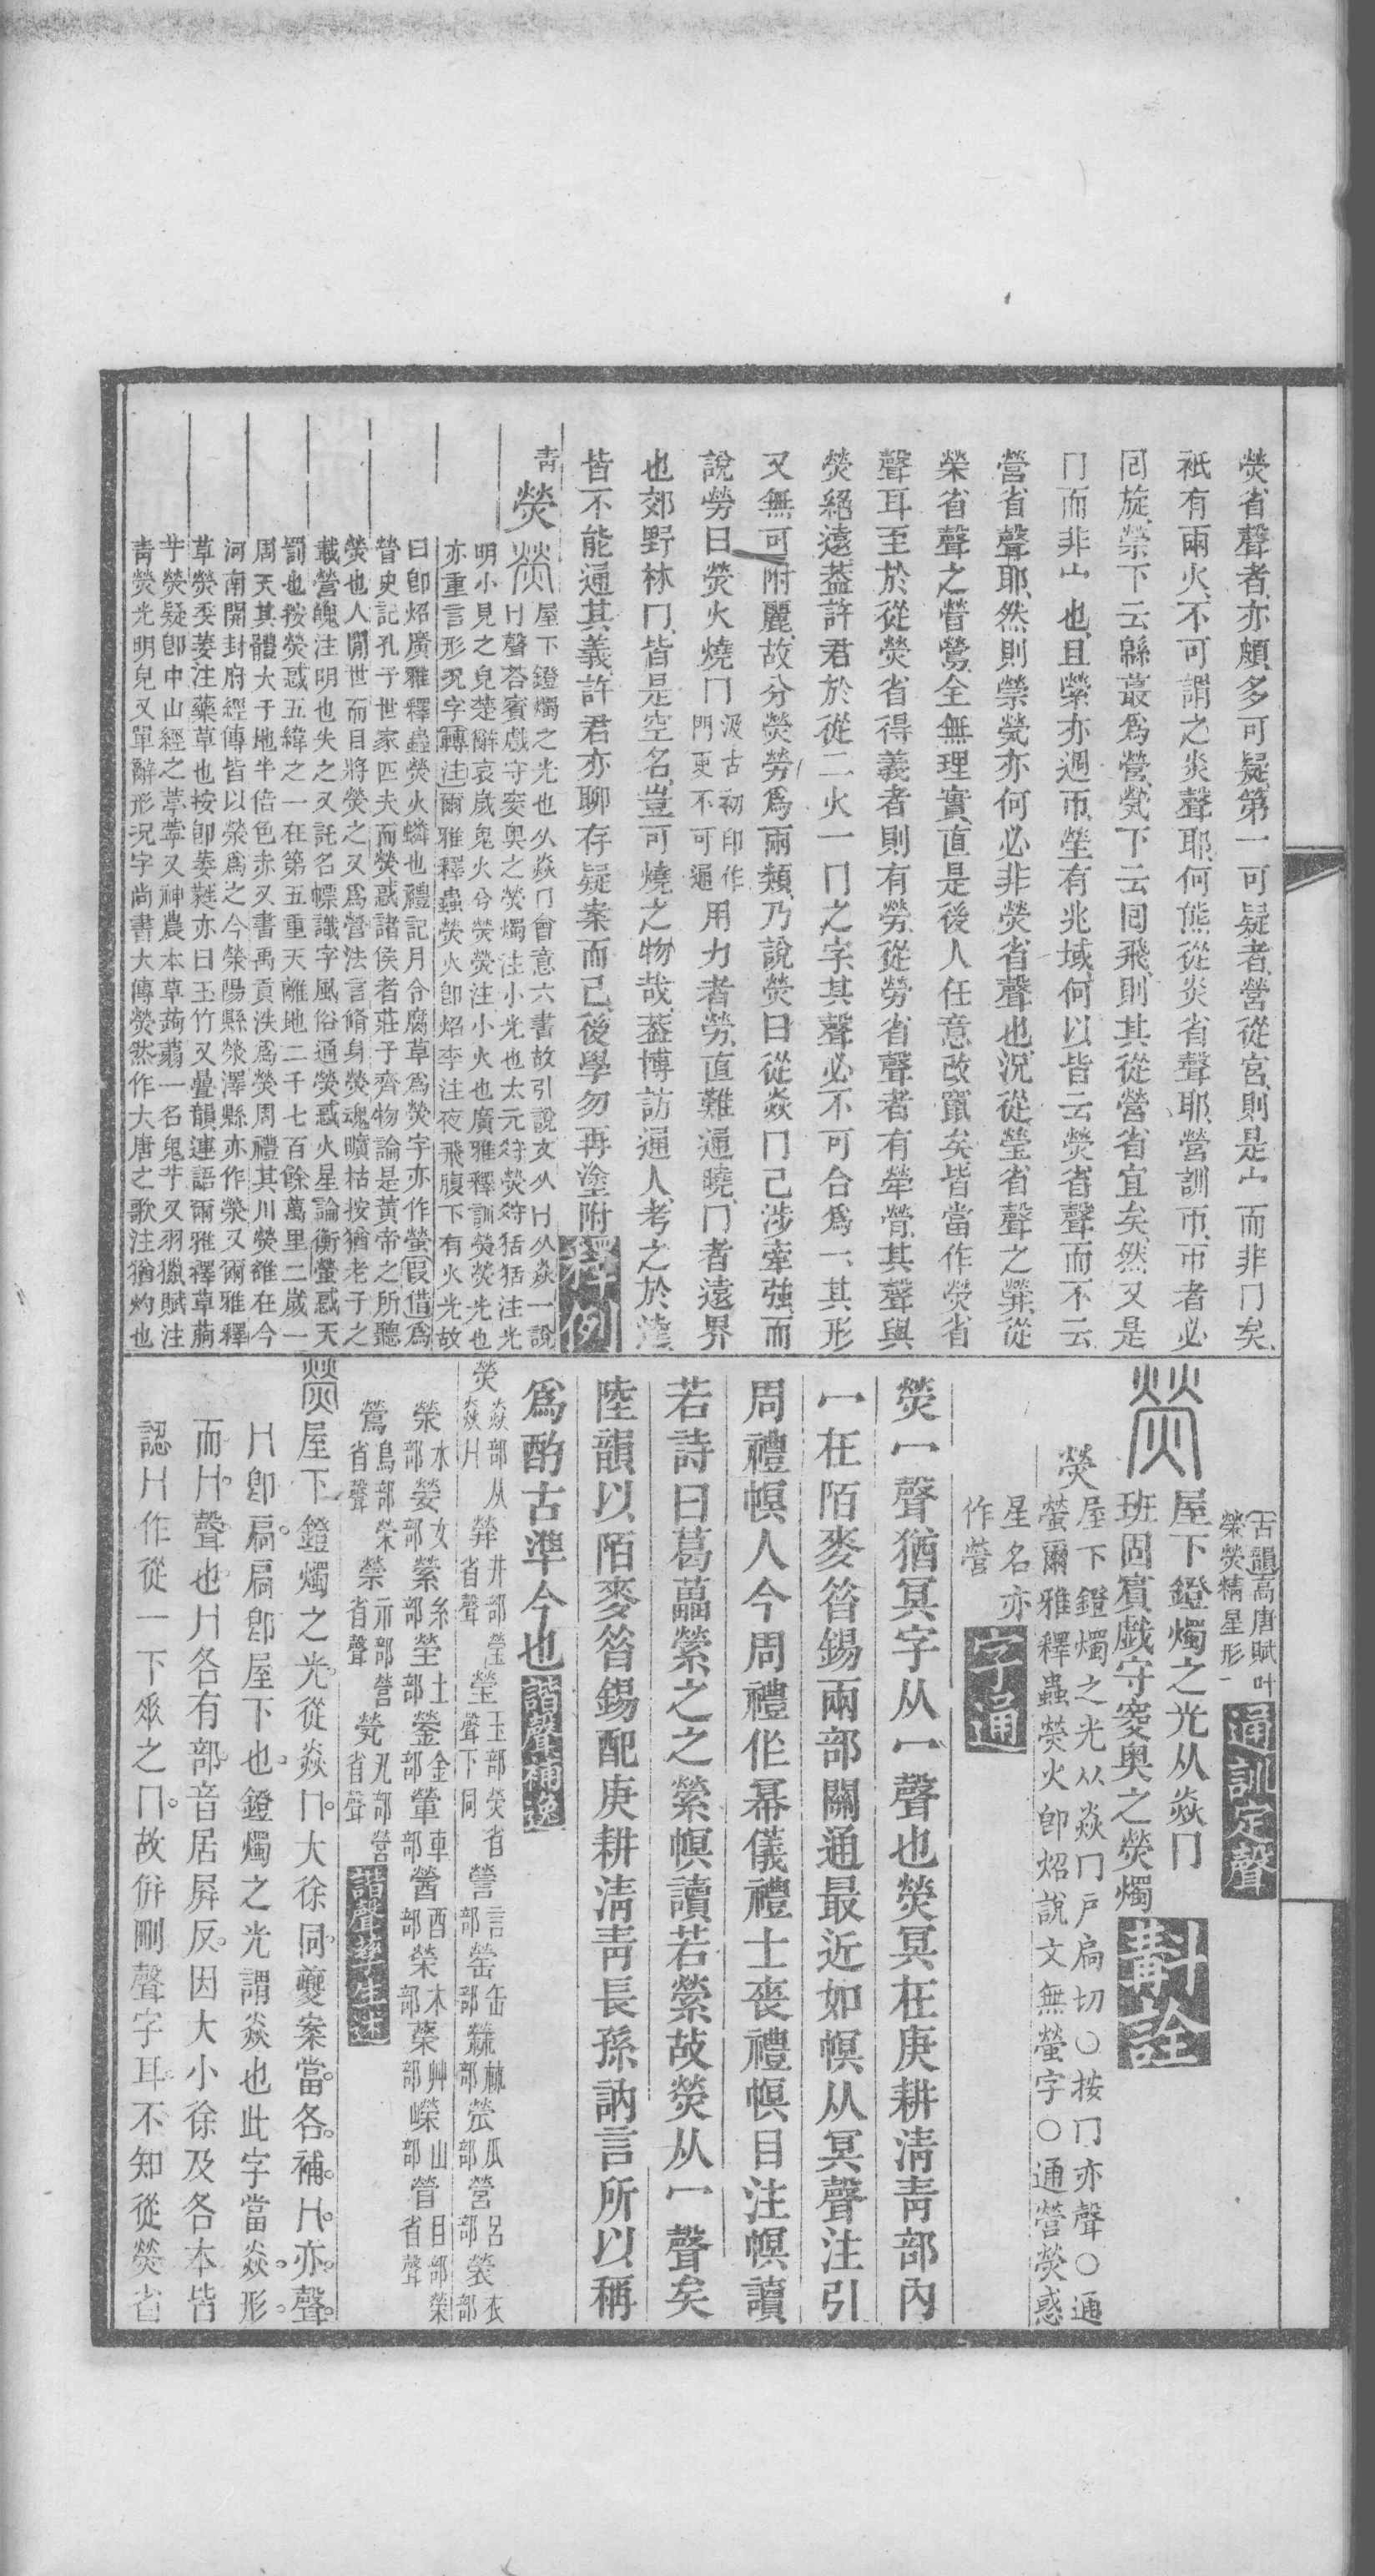 熒省聲者亦頗多可疑第一可疑者營從宮則是宀而非冂矣
衹有兩火不可謂之炎聲耶何熊從炎省聲耶營訓帀帀者必
回旋禜下云緜蕞爲營煢下云回飛則其從營省宜矣然又是
冂而非宀也且縈亦週帀塋有兆域何以皆云熒省聲而不云
營省聲耶然則禜煢亦何必非熒省聲也況從瑩省聲之褮從
榮省聲之䁝鶯全無理實直是後人任意改竄矣皆當作熒省
聲耳至於從熒省得義者則有勞從勞省聲者有犖膋其聲與
熒絕遠葢許君於從二火一冂之字其聲必不可合爲一其形
又無可附麗故分熒勞爲兩類乃說熒曰從焱冂已涉牽強而
說勞曰熒火燒冂汲古初印作門更不可通用力者勞直難通曉冂者遠界
也郊野林冂皆是空名豈可燒之物哉葢博訪通人考之於逵
皆不能通其義許君亦聊存疑案而已後學勿再塗附釋例
青熒屋下鐙燭之光也从焱冂會意六書故引說文从𠘨从焱一說
𠘨聲荅賓戲守突奧之熒燭注小光也太元狩熒狩猛猛注光
明小見之皃楚辭哀歲鬼火兮熒熒注小火也廣雅釋訓熒熒光也
亦重言形況字轉注爾雅釋蟲熒火卽炤李注夜飛腹下有火光故
曰卽炤廣雅釋蟲熒火蠊也禮記月令腐草爲熒字亦作螢叚借爲
䁝史記孔子世家匹夫而熒惑諸侯者莊子齊物論是黃帝之所聽
熒也人閒世而目將熒之又爲營法言脩身熒魂曠枯按猶老子之
載營魄注明也失之又託名幖識字風俗通熒惑火星論衡螢惑天
罰也按熒惑五緯之一在第五重天離地二千七百餘萬里二歲一
周天其體大于地半倍色赤又書禹貢泆爲熒周禮其川熒雒在今
河南開封府經傳皆以滎爲之今滎陽縣滎澤縣亦作滎又爾雅釋
草熒委萎注藥草也按卽萎蕤亦曰玉竹又疊韻連語爾雅釋草蕍
芋熒疑卽中山經之葶薴又神農本草蒟蒻一名鬼芋又羽獵賦注
青熒光明皃又單辭形況字尚書大傳熒然作大唐之歌注猶灼也
古韻高唐賦叶榮熒情星形一通訓定聲
屋下鐙燭之光从焱冂
班固賓戲守窔奧之熒燭斠詮
熒屋下鐙燭之光从焱冂戸扃切○按冂亦聲○通
螢爾雅釋蟲熒火卽炤說文無螢字○通營熒惑
星名亦作營字通
熒冖聲猶冥字从冖聲也熒冥在庚耕淸靑部內
冖在陌麥昝錫兩部關通最近如幎从冥聲注引
周禮幎人今周禮作冪儀禮士喪禮幎目注幎讀
若詩曰葛藟縈之之縈幎讀若縈故熒从冖聲矣
陸韻以陌麥昝錫配庚耕淸靑長孫訥言所以稱
爲酌古準今也諧聲補逸
屋下鐙燭之光從焱冂大徐同夔案當各補𠘨亦聲
𠘨卽扃扃卽屋下也鐙燭之光謂焱也此字當焱形
而𠘨聲也𠘨各有部音居屛反因大小徐及各本皆
認𠘨作從一下垂之冂故倂刪聲字耳不知從熒省